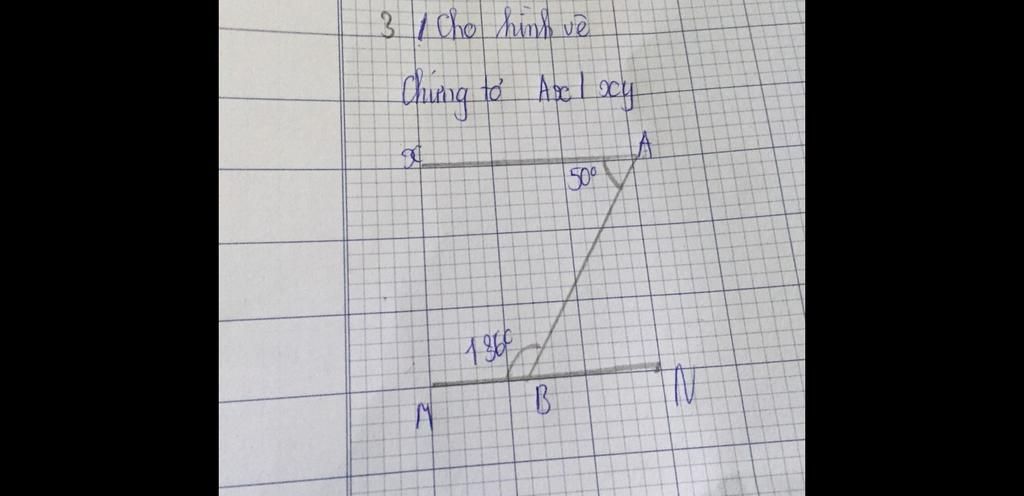 3 / Cho hình vẽ
Chứng tỏ Ax | xy
x
A
50°
136°
M
B
N